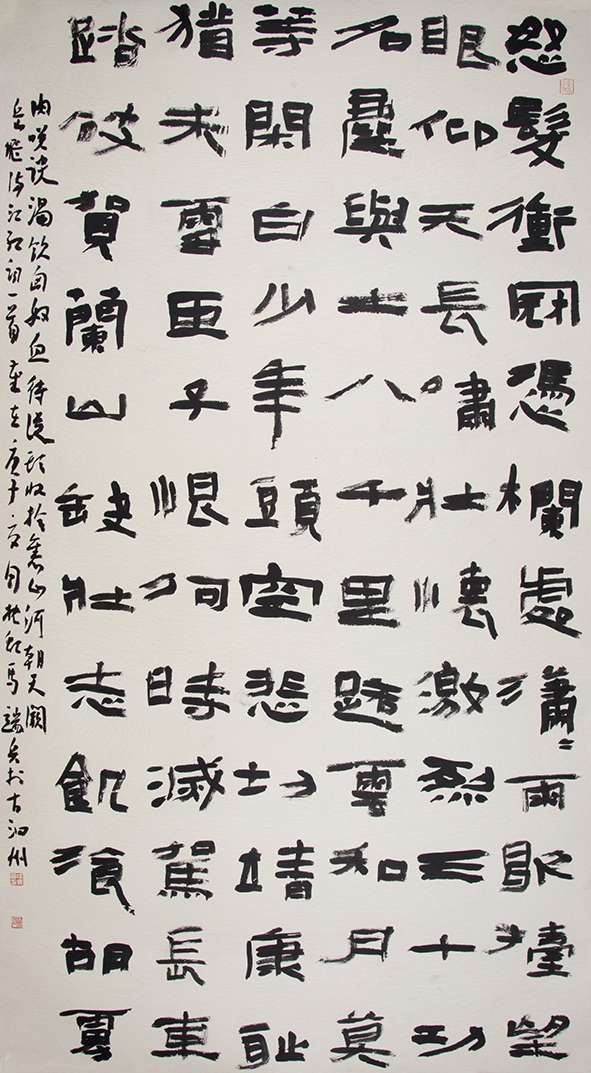 怒髮衝冠憑欄處瀟〻雨歇擡望
眼仰天長嘯壯懷激烈三十功
名塵與土八千里路雲和月莫
等閑白少年頭空悲切靖康恥
猶未雪臣子恨何時滅駕長車
踏破賀蘭山缺壯志飢湌胡虜
肉笑談渴飲匈奴血待從頭收拾舊山河朝天闕
岳飛滿江紅詞一首 庚子 夏月 馬 於古泗州